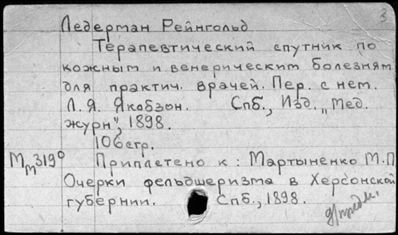 3
Ледерман Рейнгольд
Терапевтический спутник по
кожным и венерическим болезням
для практич. врачей. Пер. с нем.
Л. Я. Якобзон. Спб., Изд. „Мед.
журн", 1898.
106 стр.
Приплетено к: Мартыненко М.П
Очерки фельдшеризма в Херсонской
губернии. Спб., 1898.